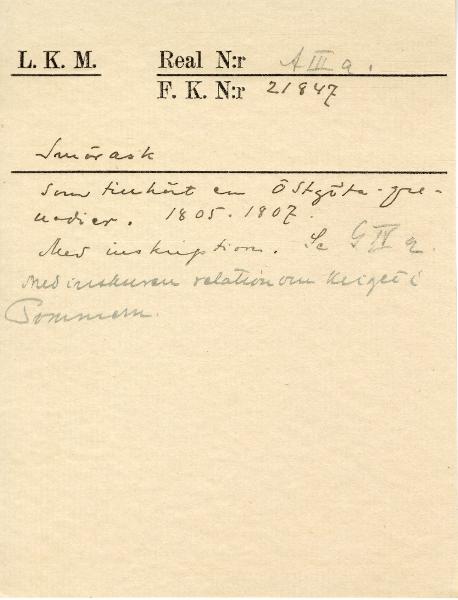 L. K. M. Real N:r A III a.
F. K. N:r 21847
Smörask
Som tillhört en Östgöta-gre-
nadier. 1805-1807.
Med inskription. Se G IV a.
Med inskuren relation om kriget i
Pommern.